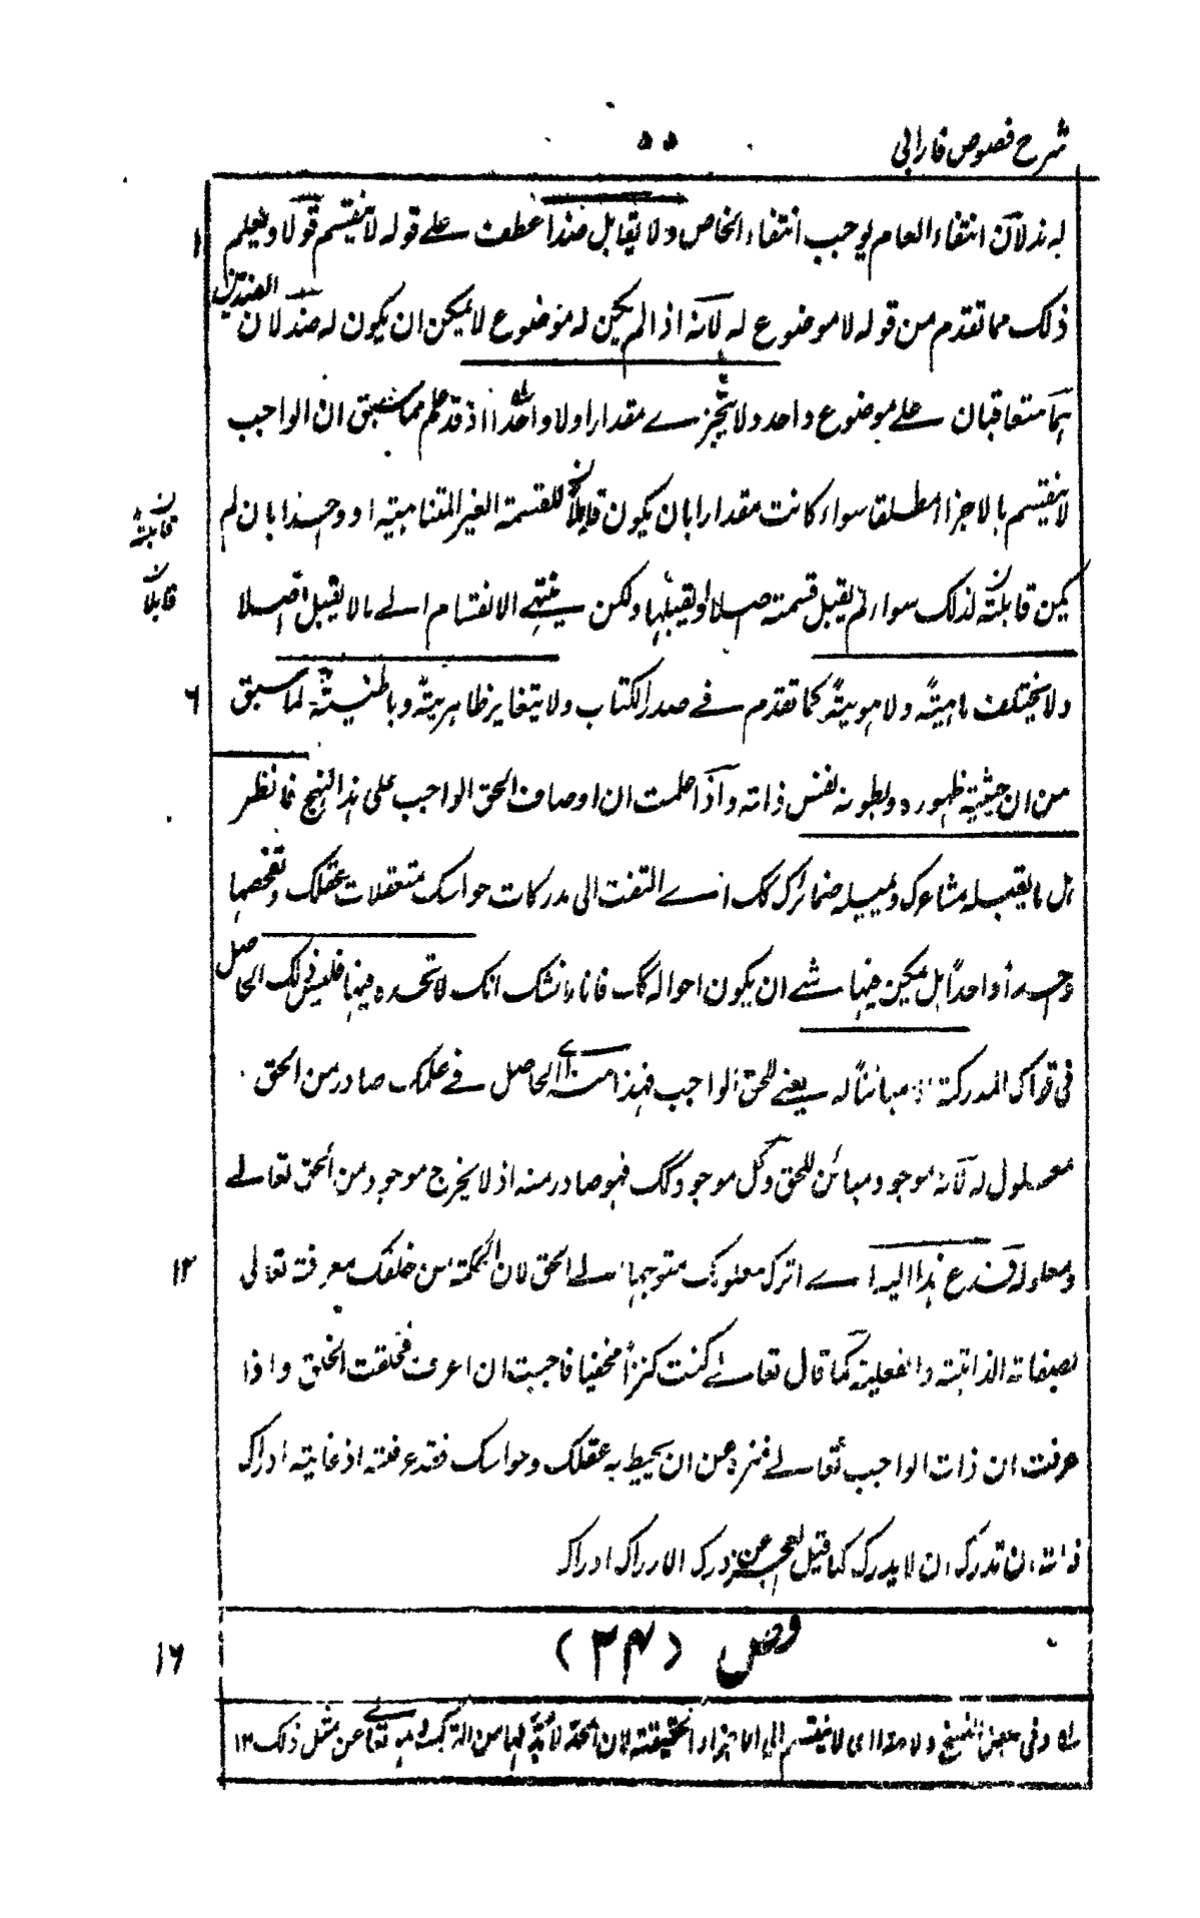 شرح فصوص فارابی
۵۵
له ند لأن انتفاء العام يوجب انتفاء الخاص ولا يقابل ضدا عطف على قوله لا ينقسم قولا ويعلم
ذلك مما تقدم من قوله لا موضوع له لأنه اذا لم يكن له موضوع لا يمكن ان يكون له ضد لان الضدين
متعاقبان على موضوع واحد ولا يتجزى مقدارا ولا واحدا اذ قد علم مما سبق ان الواجب
لا ينقسم بالاجزاء مطلقا سواء كانت مقدارا بان يكون قابلاً للقسمة الغير المتناهية او وحدا بان لم
يكن قابلة لذلك سواء لم يقبل قسمته اصلا او يقبلها ولكن ينتهى الانقسام الى ما لا يقبل اصلا
ولا يختلف ماهيةً ولا هويةً كما تقدم فى صدر الكتاب ولا يتغاير ظاهريةً وباطنيةً لما سبق
من ان حيثية ظهوره وبطونه نفس ذاته واذا علمت ان اوصاف الحق الواجب على هذا النهج فانظر
هل ما يقبله مشاعرك ويميله ضمائرك كك اى التفت الى مدركات حواسك متعقلات عقلك وتفحصها
واحداً هل يمكن فيها شى ان يكون احواله كك فانا ما نشك انك لا تجده فيها فليس ذلك الحاصل
فى قواك المدركة الا مبائناً له يعنى للحق الواجب فهذا منه اى الحاصل فى علمك صادر من الحق
معلول له لأنه موجود مبائن للحق وكل موجود كك فهو صادر منه اذ لا يخرج موجود من الحق تعالى
ومعلوله فدع هذا اليه اى اترك معلومك متوجها الى الحق لان الحكمة من خلقك معرفة تعالى
بصفاته الذاتية والفعلية كما قال تعالى كنت كنزاً مخفيا فاحببت ان اعرف فخلقت الخلق واذا
عرفت ان ذات الواجب تعالى منزه عن ان يحيط به عقلك وحواسك فقد عرفته اذ غاية ادراك
ذاته ان تدرك ان لا يدرك كما قيل العجز عن درك الادراك ادراك
فص (۳۴)
وفى بعض النسخ ولا حدا اى لا ينقسم الى الاجزاء الحقيقة لان الحد لا بد لها من التركيب وهو تعالى عن مثل ذلك ۱۲
قابلة
قابلاً
۶
۱۲
۱۶